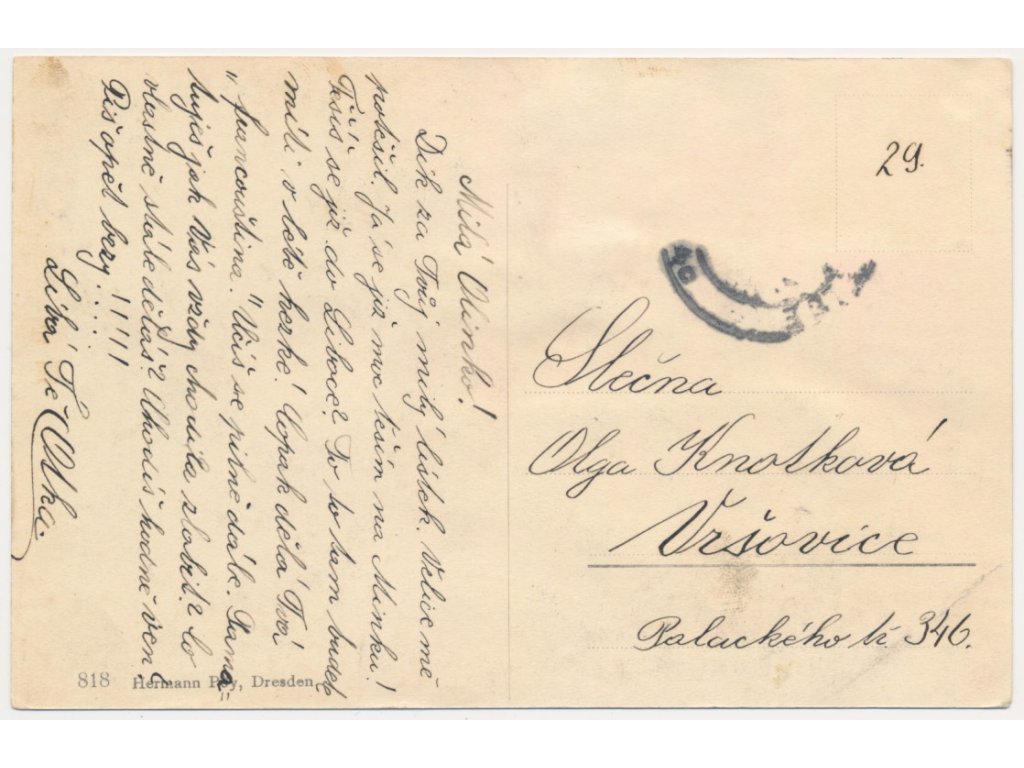 Milá Olinko!
Dík za Tvůj milý lístek. Velice mě
potěšil. Já se již moc těším na Minku!
Těšíš se již do Liboce? To to tam budete
míti v létě hezké! Copak dělá Tvá
"francouština." Učíš se pilně dále. Pama=
tuješ jak Vás vždy chodila zlobit? Co
vlastně stále děláš? Uhodíš hodně ven?
Piš opět brzy....!!!!
Líbá Tě
818 Hermann Poy, Dresden
29.
Slečna
Olga Knotková
Vršovice
Palackého tř. 346.